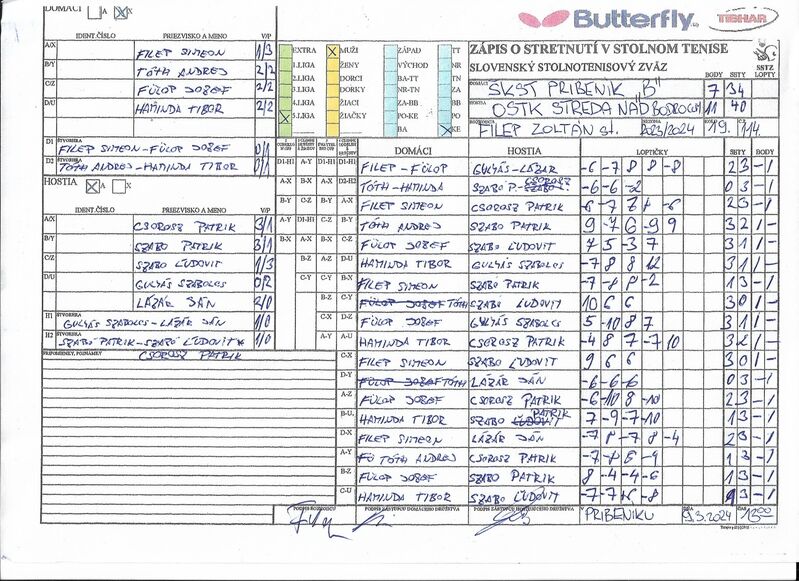 DOMÁCI A X
Butterfly TIBHAR
IDENT.ČÍSLO PRIEZVISKO A MENO V/P
A/X FILEP SIMEON 1/3
B/Y TÓTH ANDREJ 2/2
C/Z FÜLOP JOZEF 2/2
D/U HAMINDA TIBOR 2/2
EXTRA MUŽI ZÁPAD TT
1.LIGA ŽENY VÝCHOD NR
2.LIGA DORCI BA-TT TN
3.LIGA DORKY NR-TN ZA
4.LIGA ŽIACI ZA-BB BB
5.LIGA ŽIAČKY PO-KE KE
ZÁPIS O STRETNUTÍ V STOLNOM TENISE
SLOVENSKÝ STOLNOTENISOVÝ ZVÄZ
SSTZ
BODY SETY LOPTY
DOMÁCI ŠKST PRIBENIK "B" 7 34
HOSTIA OSTK STREDA NAD BODROGOM 11 40
FILEP ZOLTÁN st. 2023/2024 19. 114
D1 ŠTVORHRA FILEP SIMEON-FÜLOP JOZEF 0/1
D2 ŠTVORHRA TÓTH ANDREJ-HAMINDA TIBOR 0/1
HOSTIA A X
IDENT.ČÍSLO PRIEZVISKO A MENO V/P
A/X CSOROSZ PATRIK 3/1
B/Y SZABO PATRIK 3/1
C/Z SZABO ĽUDOVIT 1/3
D/U GULYÁS SZABOLCS 0/2
LÁZÁR JÁN 2/0
H1 ŠTVORHRA GULYÁS SZABOLCS-LÁZÁR JÁN 1/0
H2 ŠTVORHRA SZABÓ PATRIK-SZABÓ ĽUDOVIT 1/0
CSOROSZ PATRIK
PRIPOMIENKY, POZNÁMKY
DOMÁCI HOSTIA LOPTIČKY SETY BODY
D1-H1 FILEP-FÜLOP GULYÁS-LÁZAR -6 -7 8 8 -8 23 -1
D2-H2 TÓTH-HAMINDA SZABÓ P.-CSOROSZ -6 -6 -2 03 -1
A-X FILEP SIMEON CSOROSZ PATRIK 23 -1
B-Y TÓTH ANDREJ SZABO PATRIK 9 -7 6 -9 9 32 1-
C-Z FÜLOP JOZEF SZABO ĽUDOVIT 7 5 -3 7 31 1-
D-U HAMINDA TIBOR GULYÁS SZABOLCS -7 8 8 12 31 1-
B-X FILEP SIMEON SZABÓ PATRIK 13 -1
C-Y FÜLOP JOZEF TÓTH SZABO ĽUDOVIT 10 6 6 30 1-
D-Z FÜLOP JOZEF GULYÁS SZABOLCS 5 -10 8 7 31 1-
A-U HAMINDA TIBOR CSOROSZ PATRIK -4 8 7 -7 10 32 1-
C-X FILEP SIMEON SZABO ĽUDOVIT 9 6 6 30 1-
D-Y FÜLOP JOZEF TÓTH LÁZÁR JÁN -6 -6 -6 03 -1
A-Z FÜLOP JOZEF CSOROSZ PATRIK 23 -1
B-U HAMINDA TIBOR SZABO ĽUDOVIT PATRIK 7 -9 -7 -10 13 -1
D-X FILEP SIMEON LÁZÁR JÁN 23 -1
A-Y TÓTH ANDREJ CSOROSZ PATRIK 13 -1
B-Z FÜLOP JOZEF SZABO PATRIK 8 -4 -4 -6 13 -1
C-U HAMINDA TIBOR SZABO ĽUDOVIT 13 -1
PODPIS ROZHODCU PODPIS ZÁSTUPCU DOMÁCEHO DRUŽSTVA PODPIS ZÁSTUPCU HOSŤUJÚCEHO DRUŽSTVA V PRIBENIKU 9.3.2024 13:00